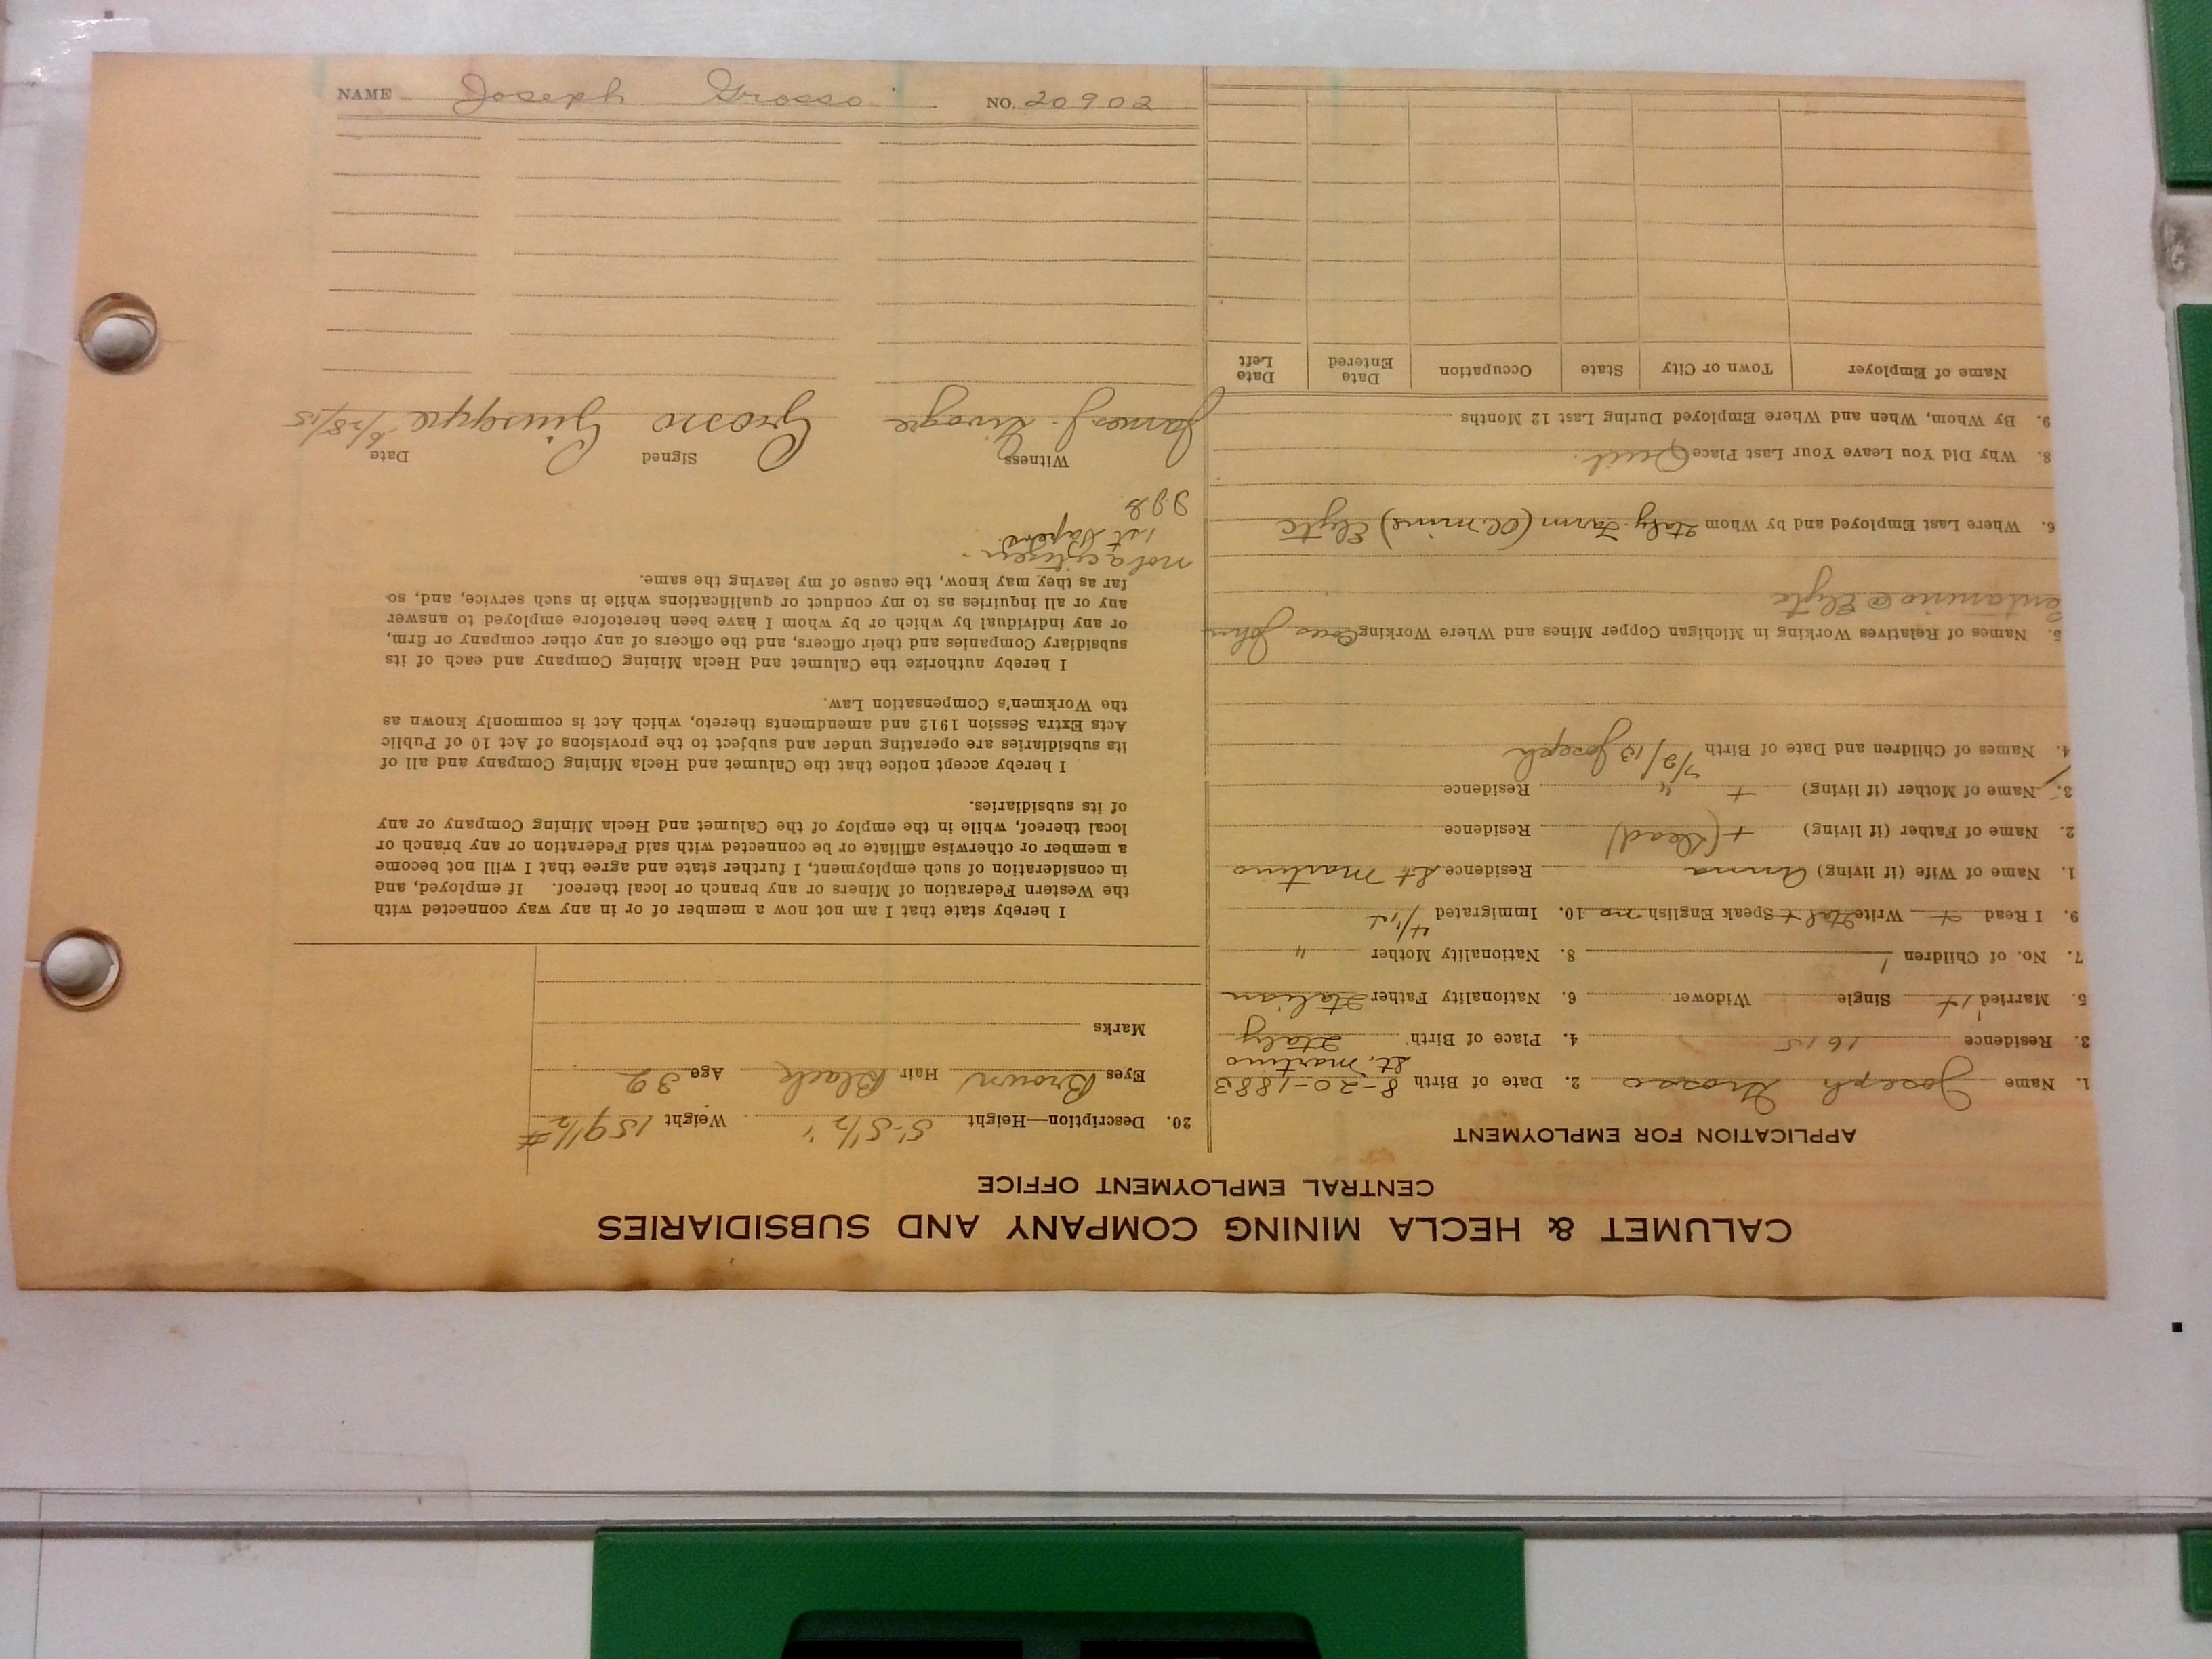 CALUMET & HECLA MINING COMPANY AND SUBSIDIARIES
CENTRAL EMPLOYMENT OFFICE
APPLICATION FOR EMPLOYMENT
1. Name Joseph Grosso 2. Date of Birth 8-20-1883
3. Residence 1615 4. Place of Birth St. Martino Italy
5. Married 1+ Single Widower 6. Nationality Father Italian
7. No. of Children 1 8. Nationality Mother "
9. I Read + Write Ital + Speak English no 10. Immigrated 4/1st
1. Name of Wife (if living) Anna Residence St Martino
2. Name of Father (if living) + (Dead) Residence
3. Name of Mother (if living) + " Residence
4. Names of Children and Date of Birth 7/2/13 Joseph
5. Names of Relatives Working in Michigan Copper Mines and Where Working John
6. Where Last Employed and by Whom Italy Farm
8. Why Did You Leave Your Last Place Quit.
9. By Whom, When and Where Employed During Last 12 Months
Name of Employer Town or City State Occupation Date Entered Date Left
20. Description—Height 5'-5 1/2" Weight 159 1/2 #
Eyes Brown Hair Black Age 32
Marks
I hereby state that I am not now a member of or in any way connected with
the Western Federation of Miners or any branch or local thereof. If employed, and
in consideration of such employment, I further state and agree that I will not become
a member or otherwise affiliate or be connected with said Federation or any branch or
local thereof, while in the employ of the Calumet and Hecla Mining Company or any
of its subsidiaries.
I hereby accept notice that the Calumet and Hecla Mining Company and all of
its subsidiaries are operating under and subject to the provisions of Act 10 of Public
Acts Extra Session 1912 and amendments thereto, which Act is commonly known as
the Workmen's Compensation Law.
I hereby authorize the Calumet and Hecla Mining Company and each of its
subsidiary Companies and their officers, and the officers of any other company or firm,
or any individual by which or by whom I have been heretofore employed to answer
any or all inquiries as to my conduct or qualifications while in such service, and, so
far as they may know, the cause of my leaving the same.
not a citizen.
1st Papers.
Witness Signed Date
James J. Grosso Giuseppe 6/28/15
NAME Joseph Grosso NO. 20902